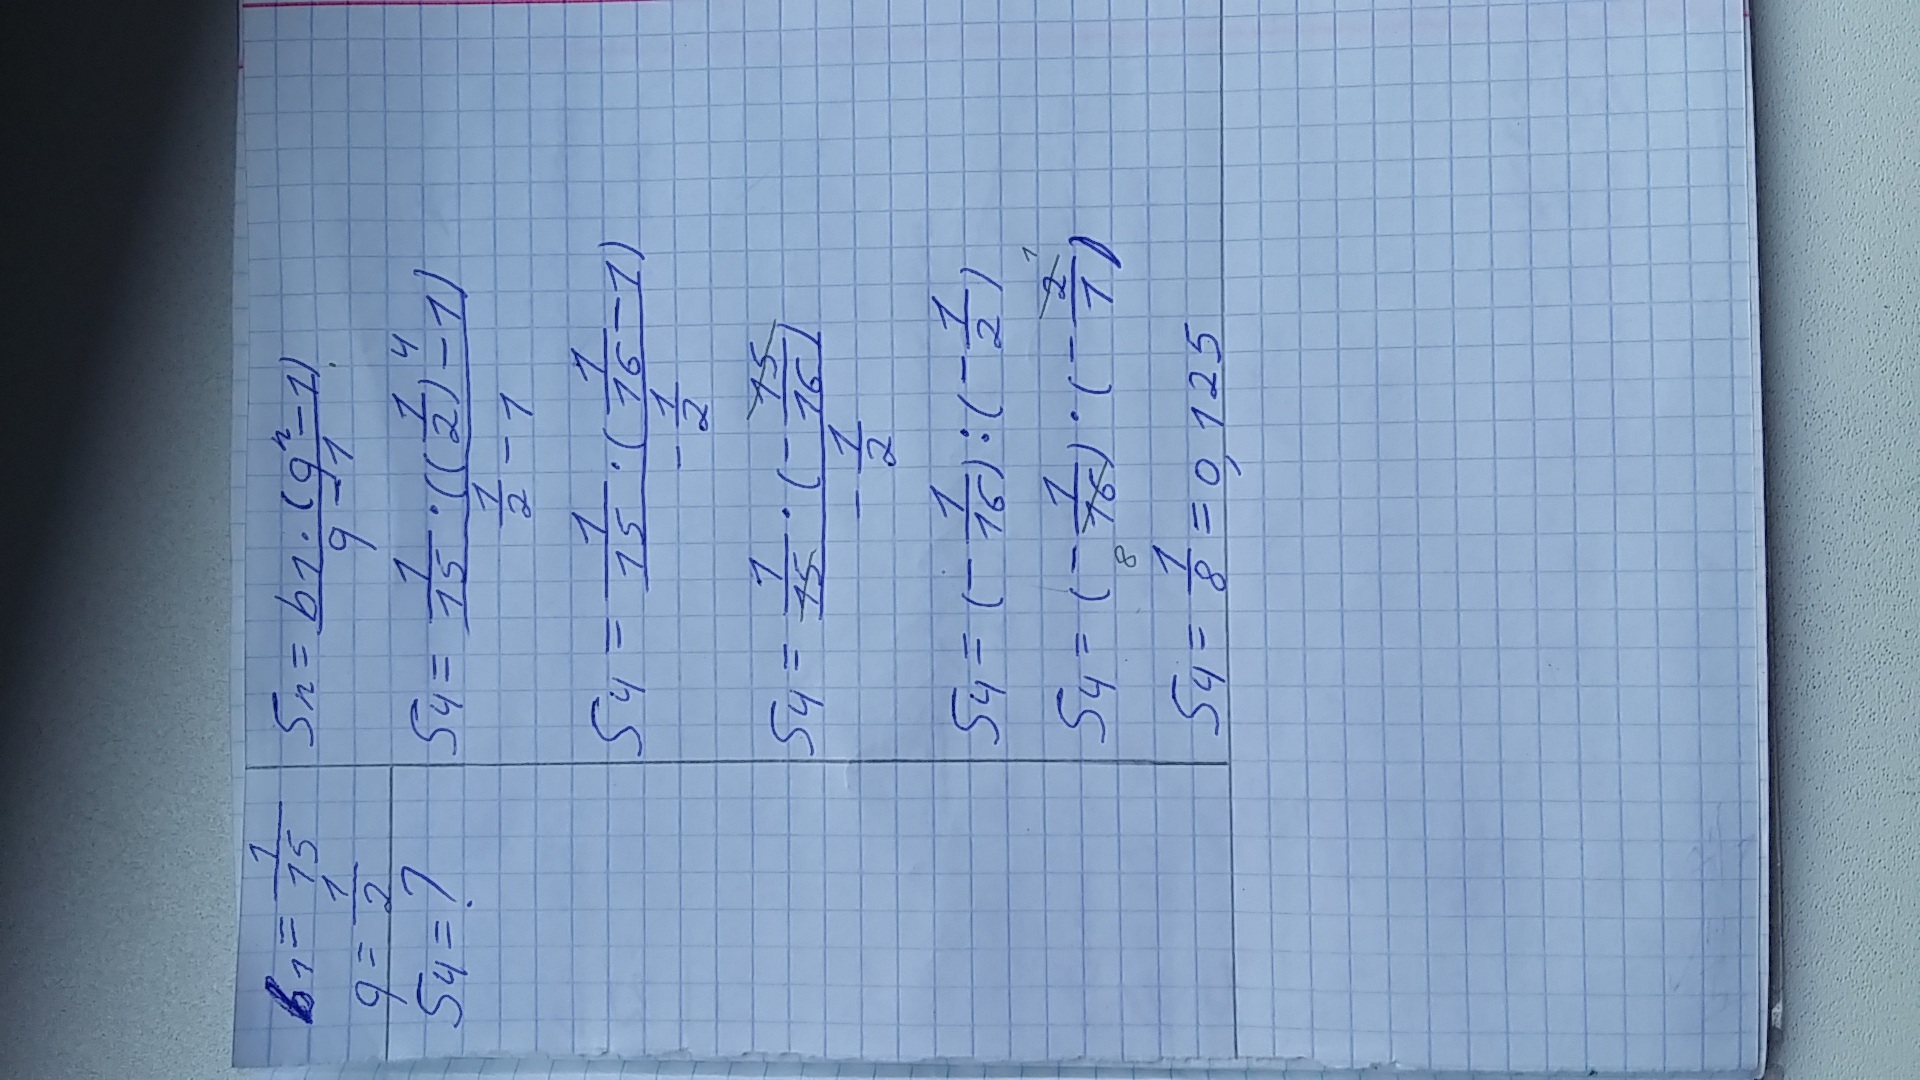 b₁ = 1/15
q = 1/2
S₄ = ?
Sₙ = b₁ · (qⁿ - 1) / q - 1
S₄ = 1/15 · ((1/2)⁴ - 1) / 1/2 - 1
S₄ = 1/15 · (1/16 - 1) / - 1/2
S₄ = 1/15 · (- 15/16) / - 1/2
S₄ = (- 1/16) : (- 1/2)
S₄ = (- 1/16 8) · (- 2 1/1)
S₄ = 1/8 = 0,125